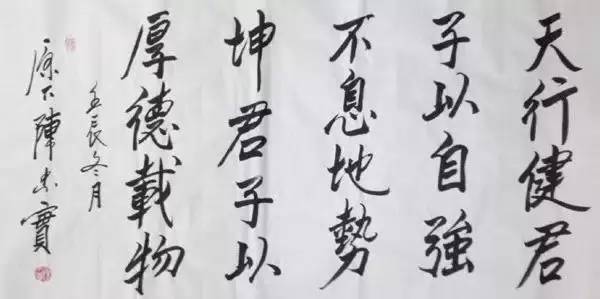 天行健君
子以自強
不息地勢
坤君子以
厚德載物
壬辰冬月
陳忠實